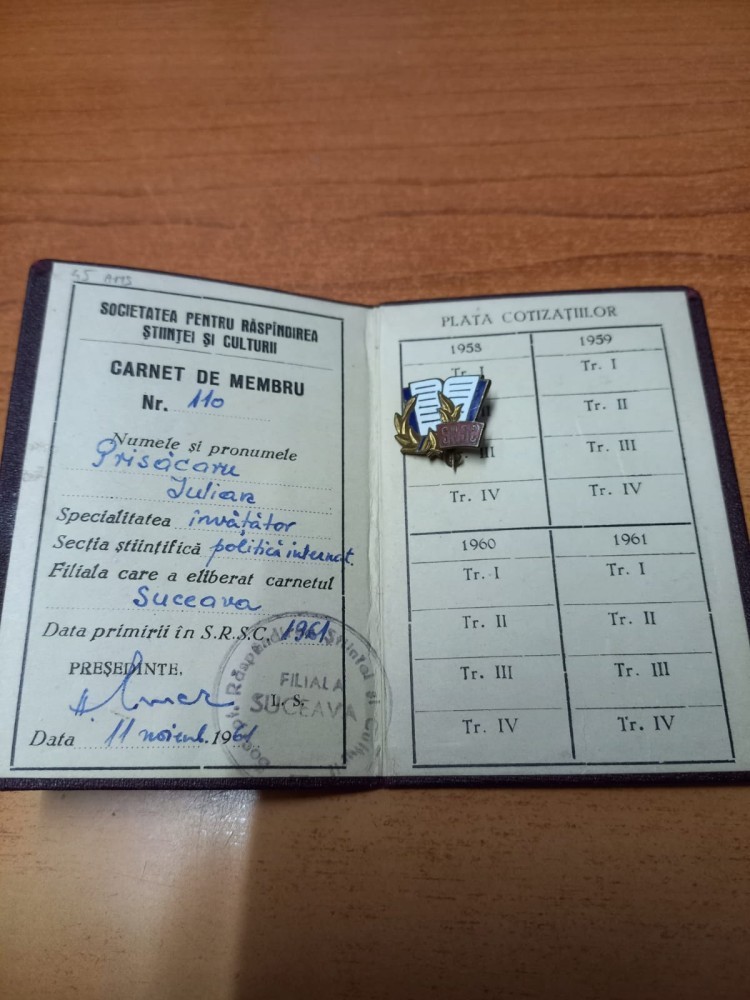 SOCIETATEA PENTRU RĂSPÎNDIREA
ȘTIINȚEI ȘI CULTURII
CARNET DE MEMBRU
Nr. 110
Numele și pronumele
Prisăcaru
Iulian
Specialitatea învățător
Secția științifică politică internaț.
Filiala care a eliberat carnetul
Suceava
Data primirii în S.R.S.C. 1961
PREȘEDINTE,
L. S.
Data 11 noiemb. 1961
FILIALA
SUCEAVA
PLATA COTIZAȚIILOR
1958
Tr. I
III
Tr. IV
1959
Tr. I
Tr. II
Tr. III
Tr. IV
SRSC
1960
Tr. I
Tr. II
Tr. III
Tr. IV
1961
Tr. I
Tr. II
Tr. III
Tr. IV